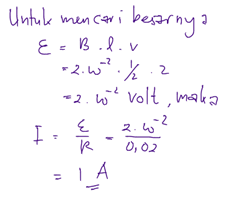 Untuk mencari besarnya
ε = B . l . v
= 2. 10⁻² . 1/2 . 2
= 2. 10⁻² Volt, maka
I = ε/R = 2. 10⁻²/0,02
= 1 A